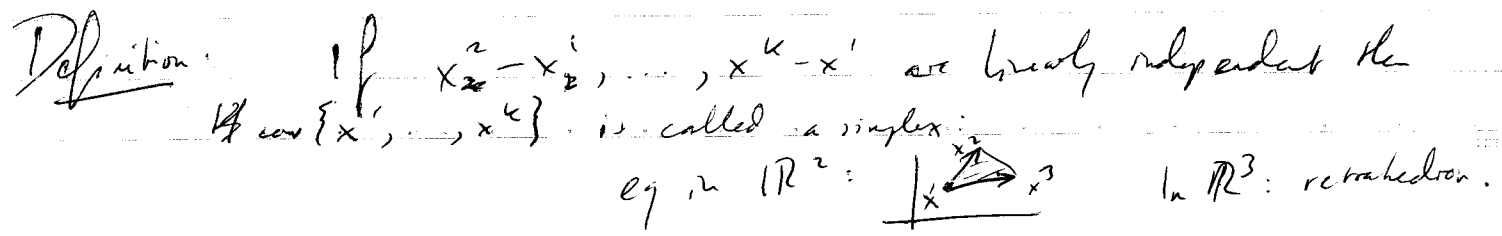 Definition. If x²-x¹, ..., x^k-x¹ are linearly independent then
conv{x¹, ..., x^k} is called a simplex.
eg in ℝ²: x¹ x² x³ In ℝ³: tetrahedron.